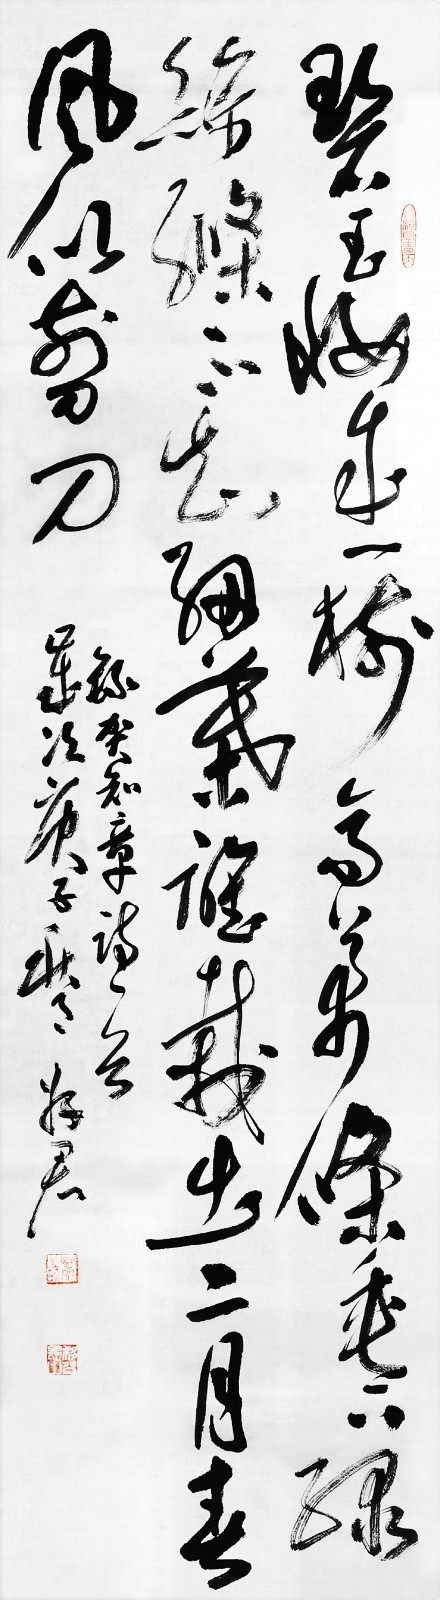 碧玉妝成一樹高萬條垂下綠
絲縧不知細葉誰裁出二月春
風似剪刀
錄賀知章詩一首
歲次庚子秋 君